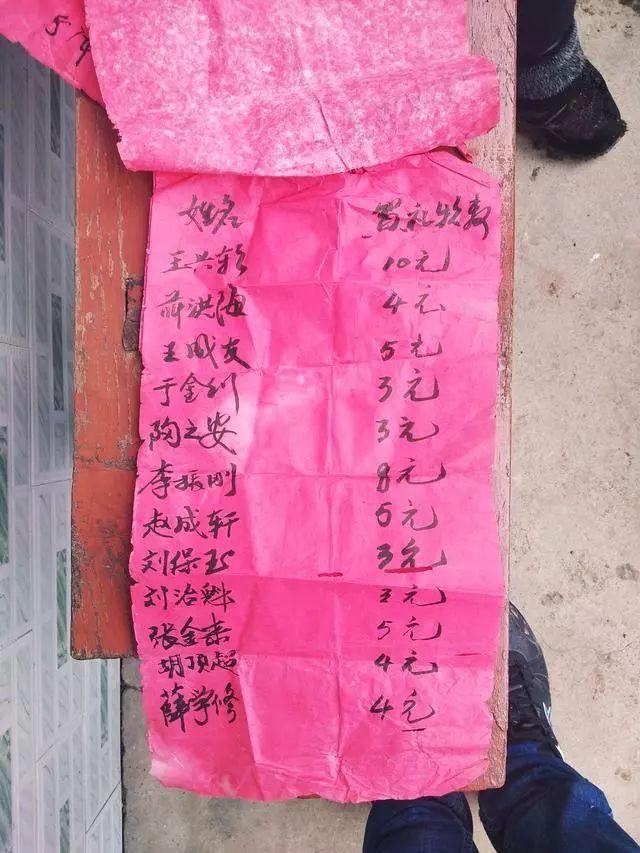 574
姓名 贺礼物数
王兴软 10元
薛洪海 4元
王成友 5元
于金钊 3元
陶之安 3元
李振刚 8元
赵成轩 5元
刘保玉 3元
刘治魁 3元
张金泰 5元
胡顶超 4元
薛学修 4元